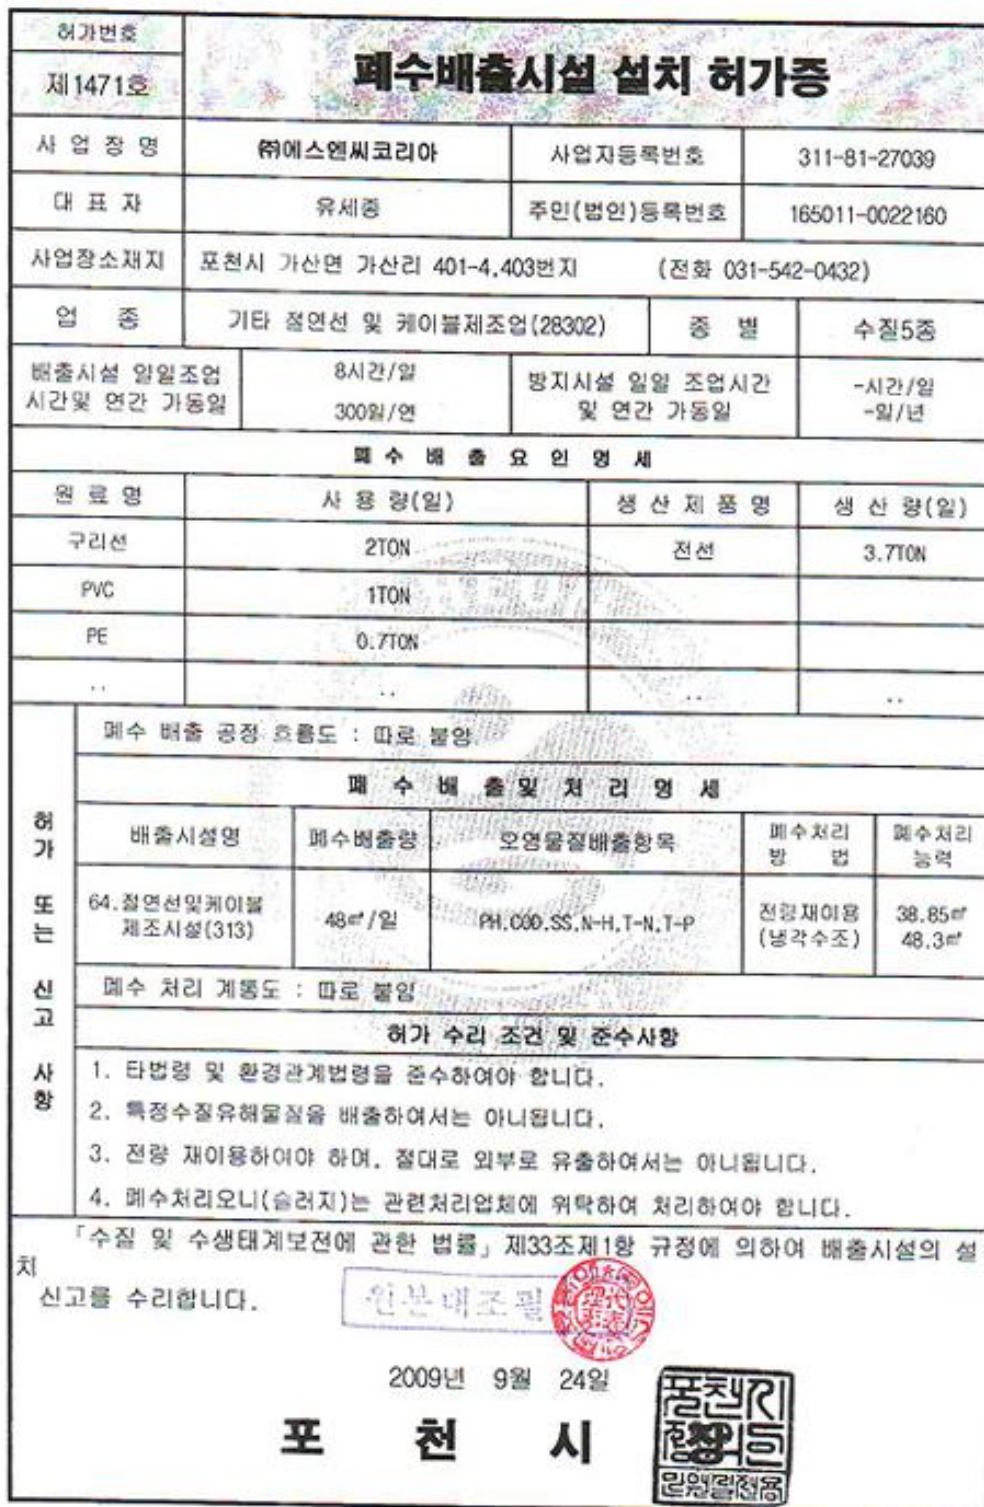 허가번호
제1471호
폐수배출시설 설치 허가증
사 업 장 명 ㈜에스엔씨코리아 사업자등록번호 311-81-27039
대 표 자 유세종 주민(법인)등록번호 165011-0022160
사업장소재지 포천시 가산면 가산리 401-4,403번지 (전화 031-542-0432)
업 종 기타 절연선 및 케이블제조업(28302) 종 별 수질5종
배출시설 일일조업 시간및 연간 가동일 8시간/일 300일/연 방지시설 일일 조업시간 및 연간 가동일 -시간/일 -일/년
폐 수 배 출 요 인 명 세
원 료 명 사 용 량(일) 생 산 제 품 명 생 산 량(일)
구리선 2TON 전선 3.7TON
PVC 1TON
PE 0.7TON
.. .. .. ..
허가 또는 신고 사항
폐수 배출 공정 흐름도 : 따로 붙임
폐 수 배 출 및 처 리 명 세
배출시설명 폐수배출량 오염물질배출항목 폐수처리 방 법 폐수처리 능력
64.절연선및케이블 제조시설(313) 48㎥/일 PH.COD.SS.N-H,T-N,T-P 전량재이용 (냉각수조) 38.85㎥ 48.3㎥
폐수 처리 계통도 : 따로 붙임
허가 수리 조건 및 준수사항
1. 타법령 및 환경관계법령을 준수하여야 합니다.
2. 특정수질유해물질을 배출하여서는 아니됩니다.
3. 전량 재이용하여야 하며, 절대로 외부로 유출하여서는 아니됩니다.
4. 폐수처리오니(슬러지)는 관련처리업체에 위탁하여 처리하여야 합니다.
「수질 및 수생태계보전에 관한 법률」 제33조제1항 규정에 의하여 배출시설의 설
치
신고를 수리합니다.
원본대조필
2009년 9월 24일
포 천 시 장
민원실전용